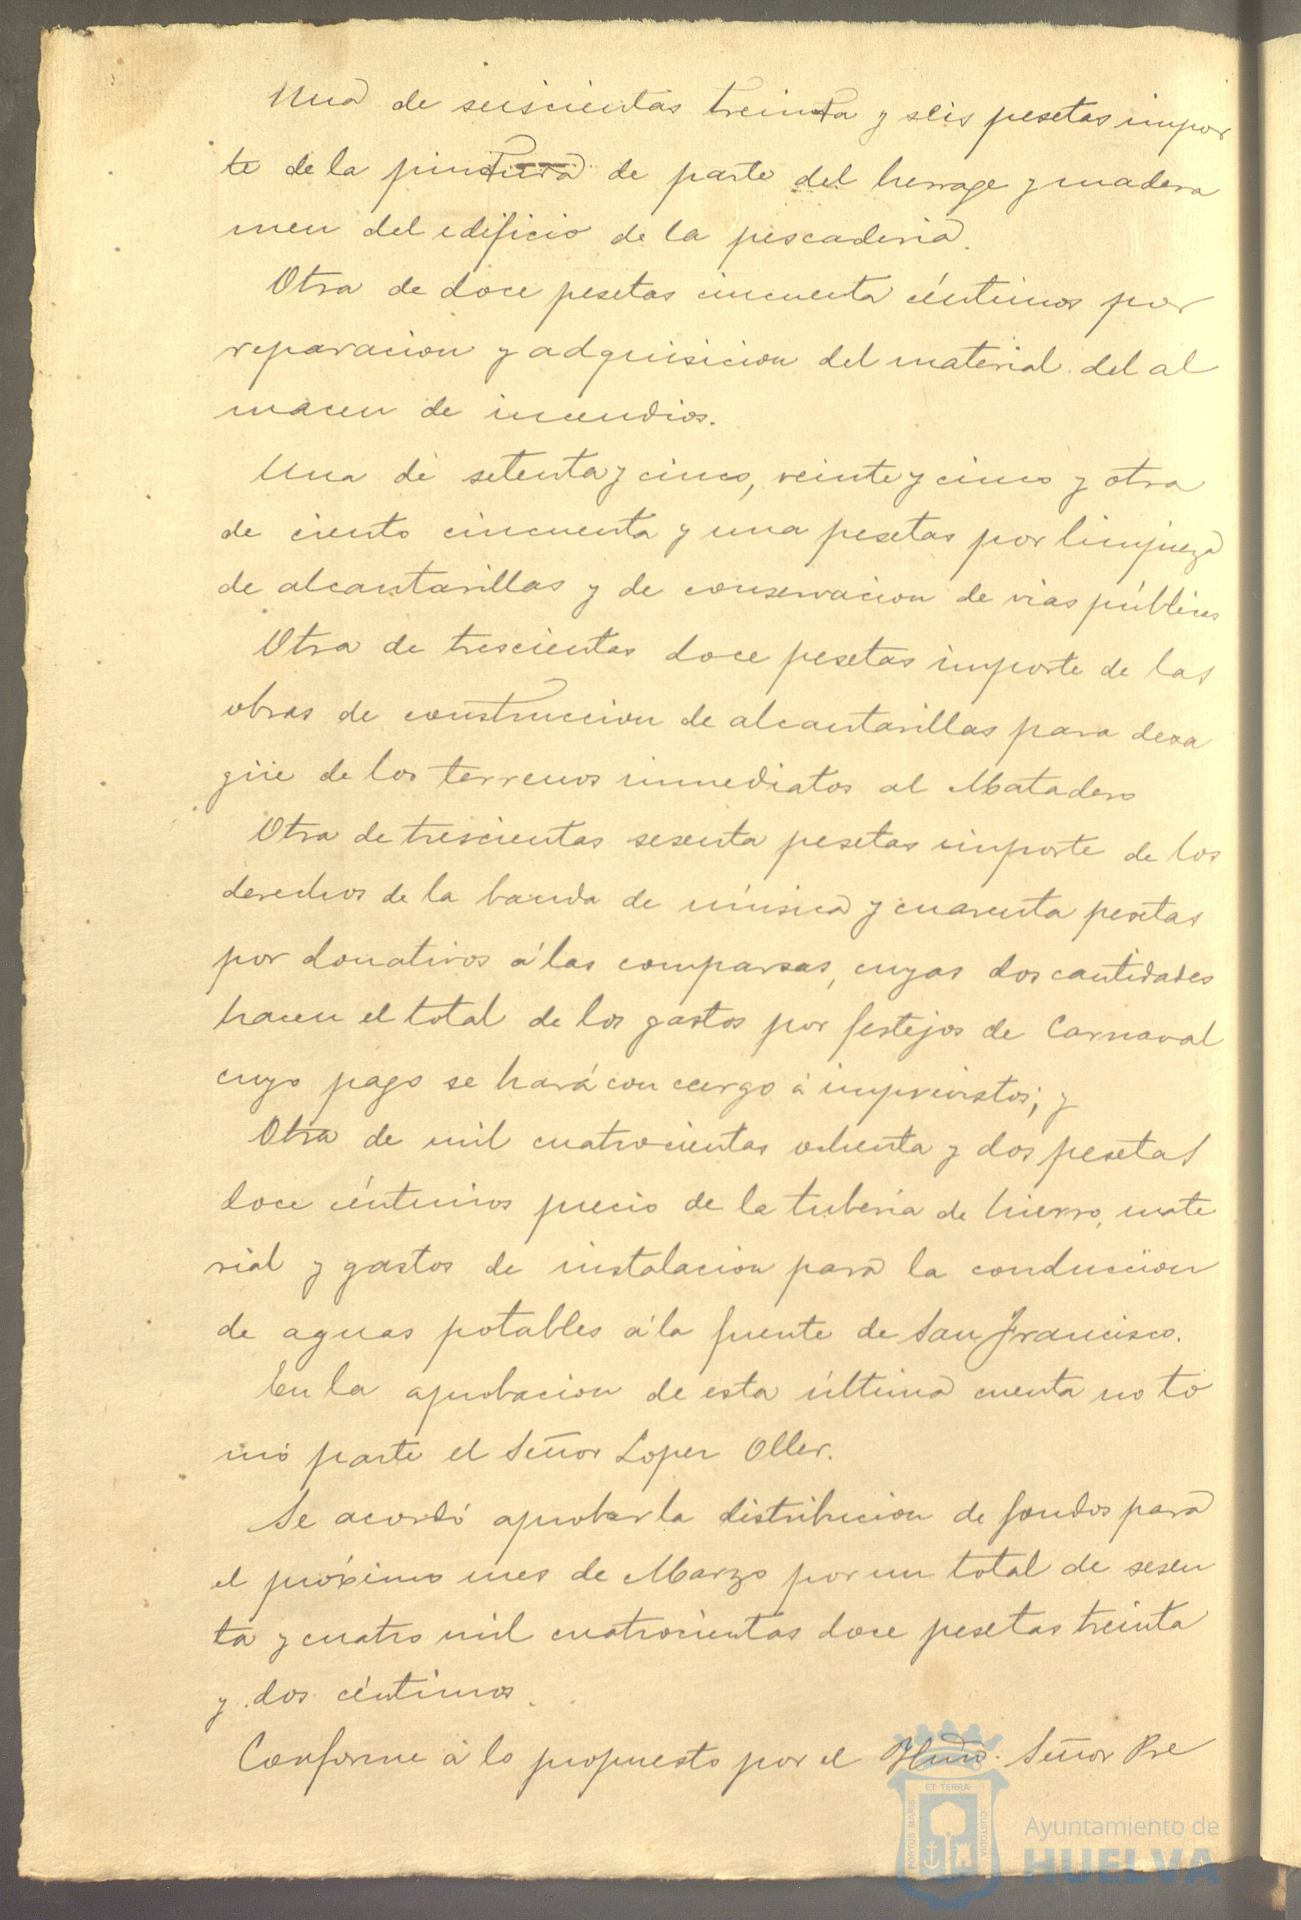 Una de seiscientas treinta y seis pesetas impor
te de la pintura de parte del herrage y madera
men del edificio de la pescaderia.
Otra de doce pesetas cincuenta céntimos por
reparacion y adquisicion del material del al
macen de incendios.
Una de setenta y cinco, veinte y cinco y otra
de ciento cincuenta y una pesetas por limpieza
de alcantarillas y de conservacion de vias públicas
Otra de trescientas doce pesetas importe de las
obras de construccion de alcantarillas para desa
güe de los terrenos inmediatos al Matadero
Otra de trescientas sesenta pesetas importe de los
derechos de la banda de música y cuarenta pesetas
por donativos á las comparsas, cuyas dos cantidades
hacen el total de los gastos por festejos de Carnaval
cuyo pago se hará con cargo á imprevistos; y
Otra de mil cuatrocientas ochenta y dos pesetas
doce céntimos precio de la tubería de hierro, mate
rial y gastos de instalacion para la conduccion
de aguas potables á la fuente de San Francisco.
En la aprobacion de esta última cuenta no to
mó parte el Señor Lopez Oller.
Se acordó aprobar la distribucion de fondos para
el próximo mes de Marzo por un total de sesen
ta y cuatro mil cuatrocientas doce pesetas treinta
y dos céntimos.
Conforme á lo propuesto por el Señor Pre
ET TERRÆ
PORTUS MARIS
CUSTODIA
Ayuntamiento de
HUELVA